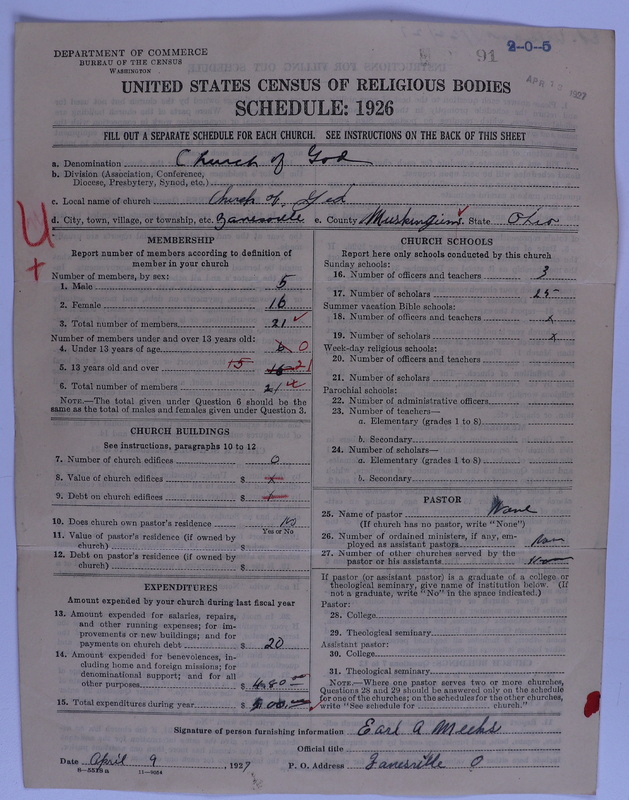 91
2-0-5
APR 1927
DEPARTMENT OF COMMERCE
BUREAU OF THE CENSUS
WASHINGTON
UNITED STATES CENSUS OF RELIGIOUS BODIES
SCHEDULE: 1926
FILL OUT A SEPARATE SCHEDULE FOR EACH CHURCH. SEE INSTRUCTIONS ON THE BACK OF THIS SHEET
a. Denomination Church of God
b. Division (Association, Conference,
Diocese, Presbytery, Synod, etc.)
c. Local name of church Church of God
d. City, town, village, or township, etc. Zanesville e. County Muskingum State Ohio
U
+
MEMBERSHIP
Report number of members according to definition of
member in your church
Number of members, by sex:
1. Male 5
2. Female 16
3. Total number of members 21
Number of members under and over 13 years old:
4. Under 13 years of age 0
5. 13 years old and over 15 21
6. Total number of members 21
NOTE.—The total given under Question 6 should be the
same as the total of males and females given under Question 3.
CHURCH BUILDINGS
See instructions, paragraphs 10 to 12
7. Number of church edifices 0
8. Value of church edifices $
9. Debt on church edifices $
10. Does church own pastor's residence No
Yes or No
11. Value of pastor's residence (if owned by
church) $
12. Debt on pastor's residence (if owned by
church) $
EXPENDITURES
Amount expended by your church during last fiscal year
13. Amount expended for salaries, repairs,
and other running expenses; for im-
provements or new buildings; and for
payments on church debt $ 20
14. Amount expended for benevolences, in-
cluding home and foreign missions; for
denominational support; and for all
other purposes $ 480 00
15. Total expenditures during year $ 00
CHURCH SCHOOLS
Report here only schools conducted by this church
Sunday schools:
16. Number of officers and teachers 3
17. Number of scholars 25
Summer vacation Bible schools:
18. Number of officers and teachers x
19. Number of scholars x
Week-day religious schools:
20. Number of officers and teachers
21. Number of scholars
Parochial schools:
22. Number of administrative officers
23. Number of teachers—
a. Elementary (grades 1 to 8)
b. Secondary
24. Number of scholars—
a. Elementary (grades 1 to 8)
b. Secondary
PASTOR
25. Name of pastor None
(If church has no pastor, write "None")
26. Number of ordained ministers, if any, em-
ployed as assistant pastors None
27. Number of other churches served by the
pastor or his assistants
If pastor (or assistant pastor) is a graduate of a college or
theological seminary, give name of institution below. (If
not a graduate, write "No" in the space indicated.)
Pastor:
28. College
29. Theological seminary
Assistant pastor:
30. College
31. Theological seminary
NOTE.—Where one pastor serves two or more churches,
Questions 28 and 29 should be answered only on the schedule
for one of the churches; on the schedules for the other churches,
write "See schedule for church."
Signature of person furnishing information Earl A Meeks
Official title
Date April 9, 1927 P. O. Address Zanesville O
8-5518a 11-9054